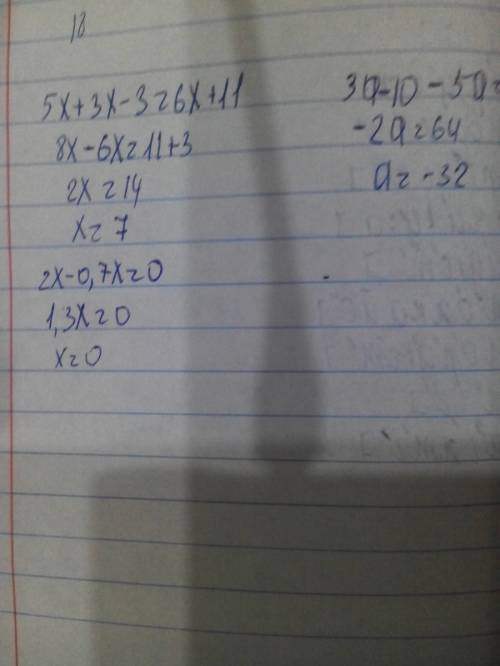 18
5x+3x-3=6x+11
8x-6x=11+3
2x=14
x=7
2x-0,7x=0
1,3x=0
x=0
3a-10-5a=
-2a=64
a=-32